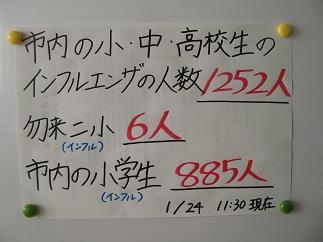 市内の小・中・高校生の
インフルエンザの人数 1252人
勿来二小 6人
(インフル)
市内の小学生 885人
(インフル)
1/24 11:30現在